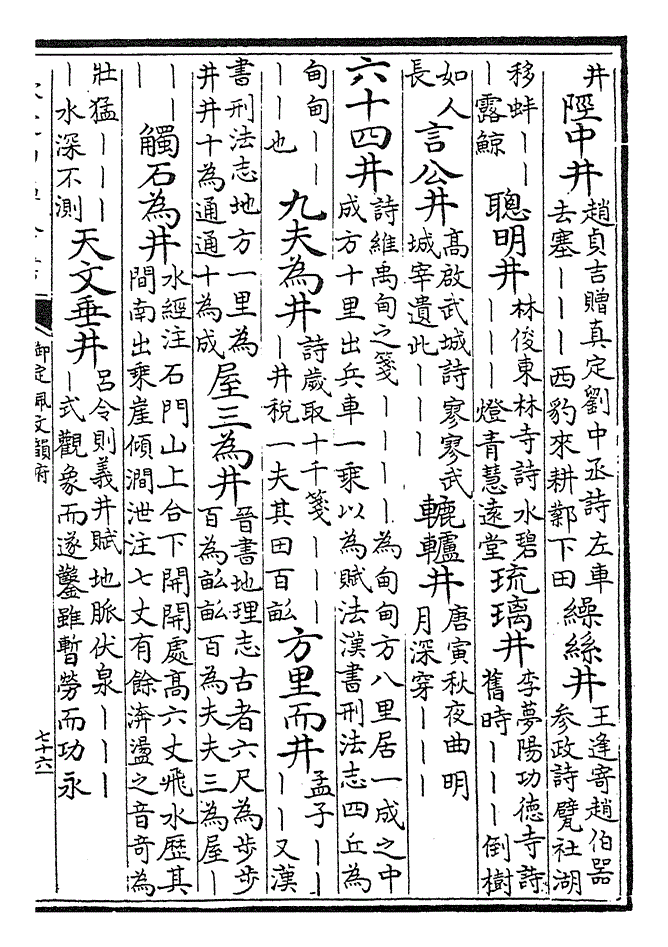 井陘中井趙貞吉贈真定劉中丞詩左車去塞｜｜｜西豹來耕鄴下田繰絲井王逢寄趙伯器參政詩甓社湖
移蚌｜｜｜露鯨聰明井林俊東林寺詩水碧｜｜｜燈青慧遠堂琉璃井李夢陽功德寺詩舊時｜｜｜倒樹
如人長言公井高啟武城詩寥寥武城宰遺此｜｜｜轆轤井唐寅秋夜曲明月深穿｜｜｜
六十四井詩維禹甸之箋｜｜｜｜為甸甸方八里居一成之中成方十里出兵車一乘以為賦法漢書刑法志四丘為
甸甸｜｜｜｜也九夫為井詩歲取十千箋｜｜｜｜井稅一夫其田百畝方里而井孟子｜｜｜｜又漢
書刑法志地方一里為井井十為通通十為成屋三為井晉書地理志古者六尺為步步百為畝畝百為夫夫三為屋｜
｜｜｜觸石為井水經注石門山上合下開開處高六丈飛水歷其間南出乘崖傾澗泄注七丈有餘渀盪之音奇為
壯猛｜｜｜｜水深不測天文垂井呂令則義井賦地脈伏泉｜｜｜｜式觀象而遂鑿雖暫勞而功永
御定佩文韻府
七十六